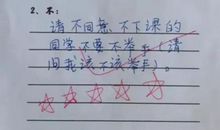 2、不:
请不回無不下课的
同学不要不举手(请
问我该不该举手)。